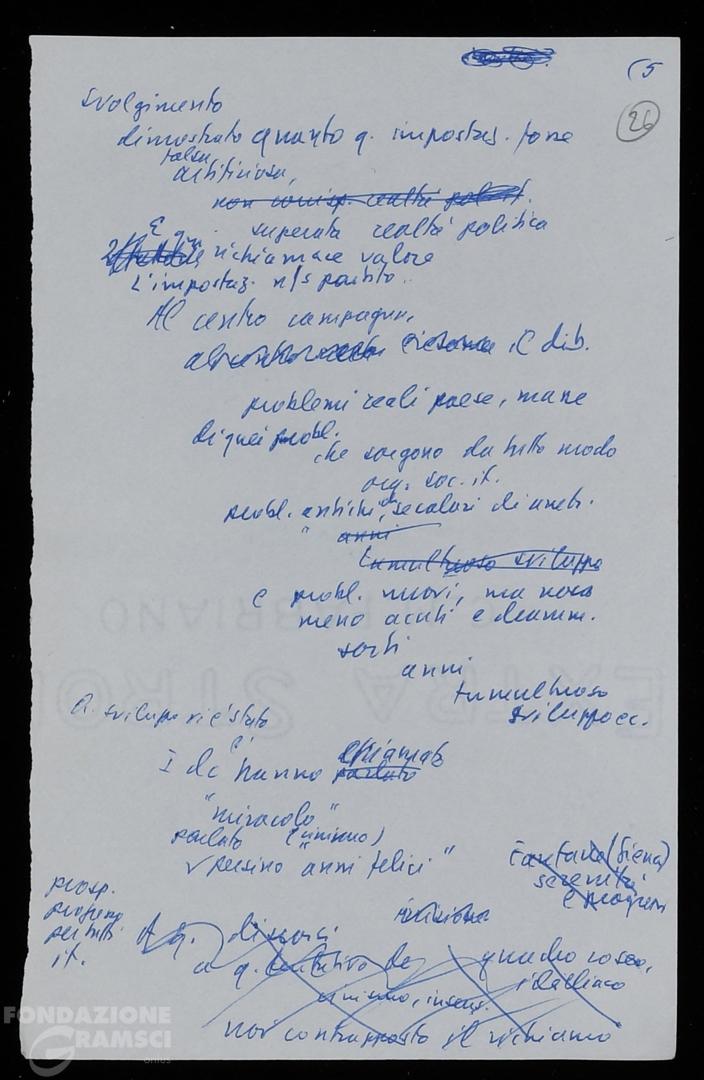 (5
26
Svolgimento
dimostrato quanto q. impostaz. fosse
falsa
artificiosa,
non corrisp. realtà polit.
superata realtà politica
E qui
richiamare valore
L'impostaz. n/s partito..
Al centro campagna,
il dib.
problemi reali paese, masse
di quei probl.
che sorgono da tutto modo
org. soc. it.
probl. antichi, secolari di
" anni
tumultuoso sviluppo
e probl. nuovi, ma non
meno acuti e dramm.
sorti
anni
tumultuoso
sviluppo ec.
sviluppo vi è stato
I dc hanno chiamato
parlato
"miracolo"
parlato (cinismo)
persino "anni felici"
Fanfani (Siena)
serenità
e progresso
prosp.
progresso
per tutti
it.
A q. discorsi
a q. tentativo dc
quadro roseo,
idilliaco
cinismo, insens.
noi contrapposto il richiamo
FONDAZIONE
GRAMSCI
onlus